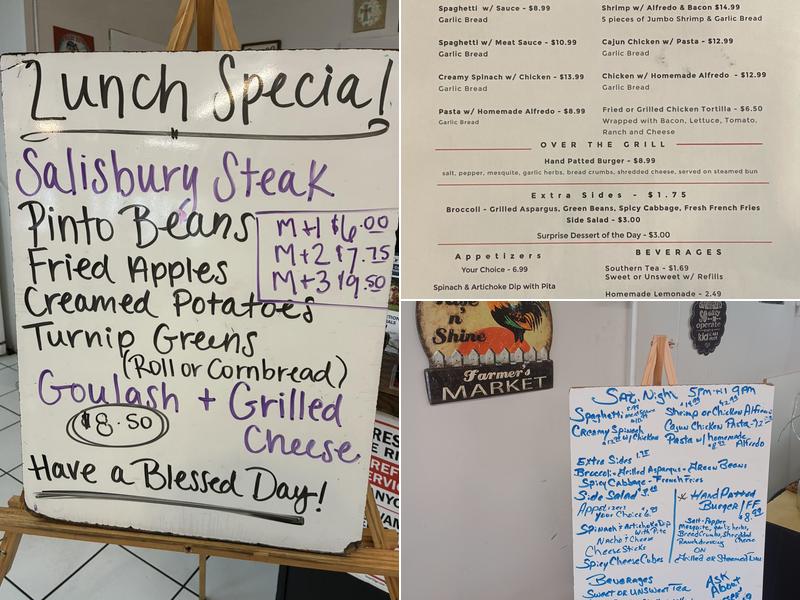 Lunch Special!
Salisbury Steak
Pinto Beans
Fried Apples
Creamed Potatoes
Turnip Greens
(Roll or Cornbread)
M+1 $6.00
M+2 $7.75
M+3 $9.50
Goulash + Grilled
Cheese
$8.50
Have a Blessed Day!
Spaghetti w/ Sauce - $8.99
Garlic Bread
Spaghetti w/ Meat Sauce - $10.99
Garlic Bread
Creamy Spinach w/ Chicken - $13.99
Garlic Bread
Pasta w/ Homemade Alfredo - $8.99
Garlic Bread
Shrimp w/ Alfredo & Bacon $14.99
5 pieces of Jumbo Shrimp & Garlic Bread
Cajun Chicken w/ Pasta - $12.99
Garlic Bread
Chicken w/ Homemade Alfredo - $12.99
Garlic Bread
Fried or Grilled Chicken Tortilla - $6.50
Wrapped with Bacon, Lettuce, Tomato,
Ranch and Cheese
OVER THE GRILL
Hand Patted Burger - $8.99
salt, pepper, mesquite, garlic herbs, bread crumbs, shredded cheese, served on steamed bun
Extra Sides - $1.75
Broccoli - Grilled Aspargus, Green Beans, Spicy Cabbage, Fresh French Fries
Side Salad - $3.00
Surprise Dessert of the Day - $3.00
Appetizers
Your Choice - 6.99
Spinach & Artichoke Dip with Pita
BEVERAGES
Southern Tea - $1.69
Sweet or Unsweet w/ Refills
Homemade Lemonade - 2.49
n'
Shine
Farmer's
MARKET
operate
Sat. Night 5PM-til 9PM
Spaghetti
Creamy Spinach
w/ Chicken
Shrimp or Chicken Alfredo
Cajun Chicken Pasta
Pasta w/ homemade
Alfredo
Extra Sides
Broccoli - Grilled Aspargus - Green Beans
Spicy Cabbage - French Fries
Side Salad
Appetizers
your Choice
Spinach & Artichoke Dip
With Pita
Nacho & Cheese
Cheese Sticks
Spicy Cheese Cubes
Hand Patted
Burger/FF
8.99
Salt-Pepper
mesquite, garlic herbs,
Bread Crumbs, Shredded
Cheese
ON
Grilled or Steamed Bun
Beverages
Sweet or Unsweet Tea
Ask
About